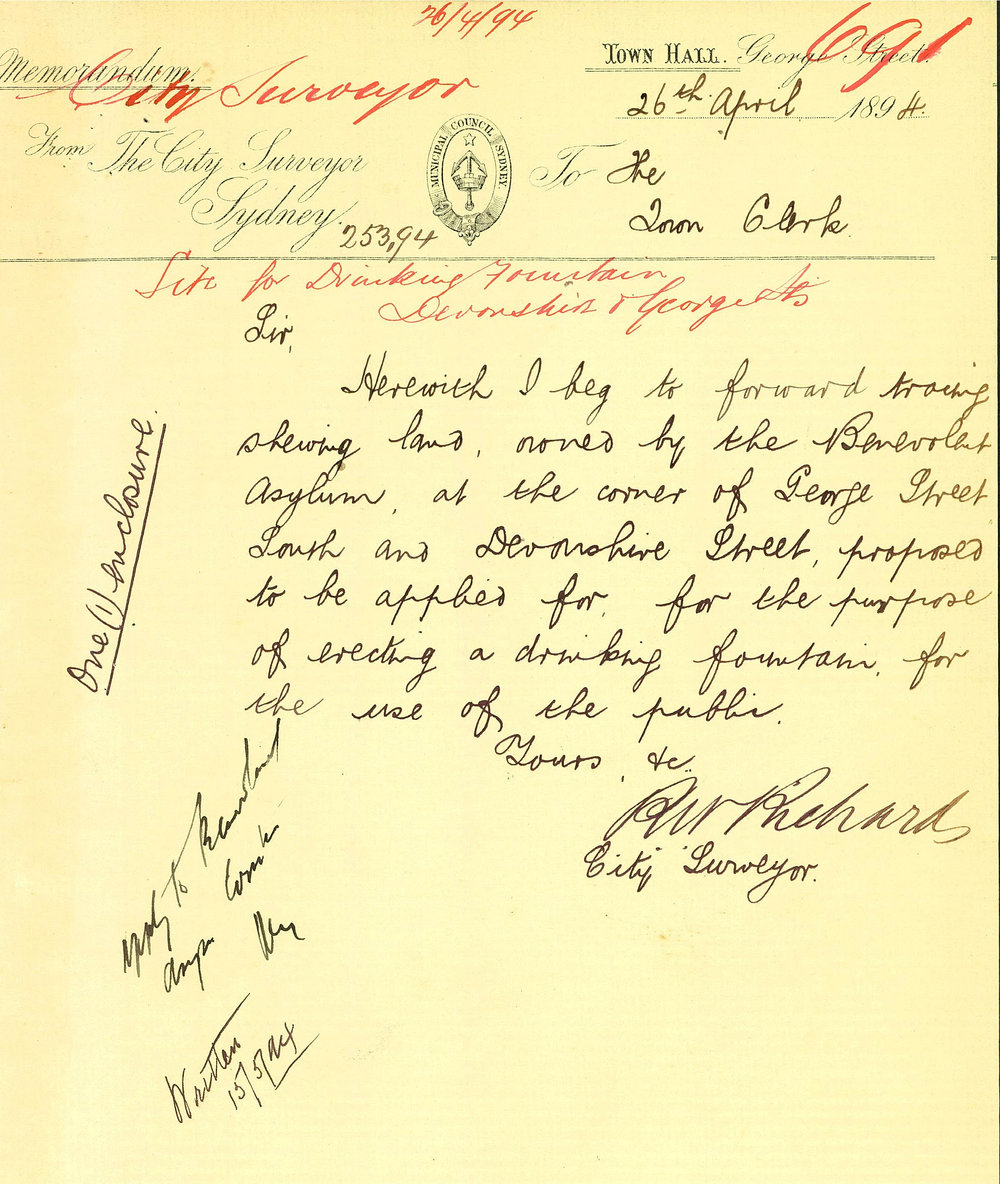 26/4/94
Memorandum.
City Surveyor
TOWN HALL. George Street.
691
26th April 1894.
From The City Surveyor
Sydney.
MUNICIPAL COUNCIL SYDNEY
To The
Town Clerk
253,94
Site for Drinking Fountain
Devonshire & George Sts
Sir,
Herewith I beg to forward tracing
shewing land, owned by the Benevolent
Asylum, at the corner of George Street
South and Devonshire Street, proposed
to be applied for, for the purpose
of erecting a drinking fountain, for
the use of the public.
Yours, &c.
RW Richards
City Surveyor.
One (1) enclosure.
apply to
Written
15/5/94